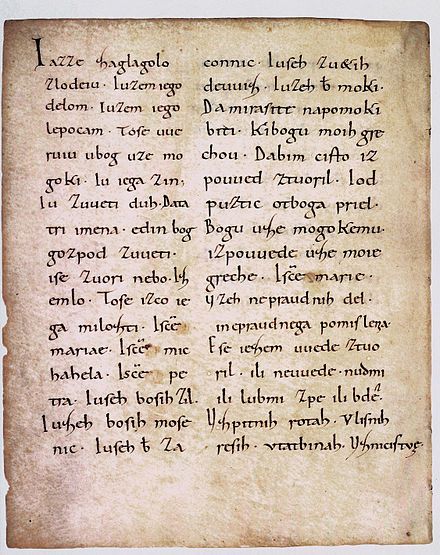 Iazze zaglagolo
zlodeiu. Iuzem iego
delom. Iuzem iego
lepocam. Tose uue
ruiu ubog uze mo
goki. Iu iega zin,
Iu zuueti duh. Data
tri imena. edin bog
gozpod zuueti.
ise zuori nebo. Iz
emlo. Tose izco ie
ga milozti. Isc̄e
mariae. Isc̄e mic
hahela. Isc̄e pe
tra. Iuseh bosih zil.
Iuzeh bosih mose
nic. Iuseh b̄ za
connic. Iuseh zu&ih
deuuiz. Iuzeh b̄ moki.
Da mirasite napomoki
biti. Kibogu moih gre
chou. Dabim cisto iz
pouued ztuoril. Iod
puztic otboga priel.
Bogu uze mogokemu.
izpouuede uze moie
greche. Isc̄e marie.
Uzeh nepraudnih del.
inepraudnega pomislena.
Ese iezem uuede ztuo
ril. ili neuuede. nudmi
ili lubmi zpe ili bde.
Uzpitnih rotah. Vlisnih
resih. vtatbinah. Uznicistuę.